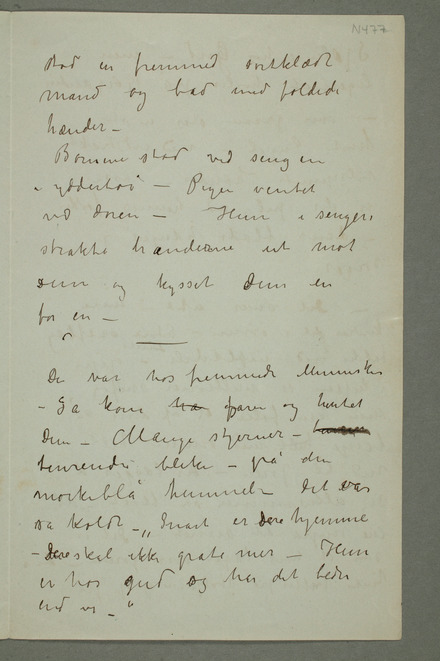 N477
stod en fremmed sortklædt
mand og bad med foldede
hænder –
Børnene stod ved sengen
i yddertøi – Pigen ventet
ved døren – Hun i sengen
strakte hænderne ut mot
dem og kysset dem en
for en –
De var hos fremmede Mennesker
– Så kom faren og hentet
dem – Mange stjerner –
tinrende bleke – på den
mørkeblå himmel det var
så koldt – „Snart er Dere hjemme
– Dere skal ikke gråte mer – Hun
er hos gud og har det bedre
end vi – "